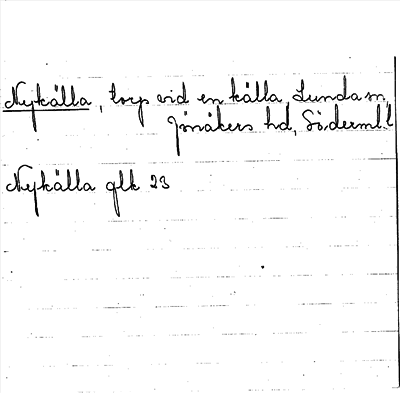 Nykälla, torp vid en källa, Lunda sn,
Jönåkers hd, Söderml
Nykälla glk 23